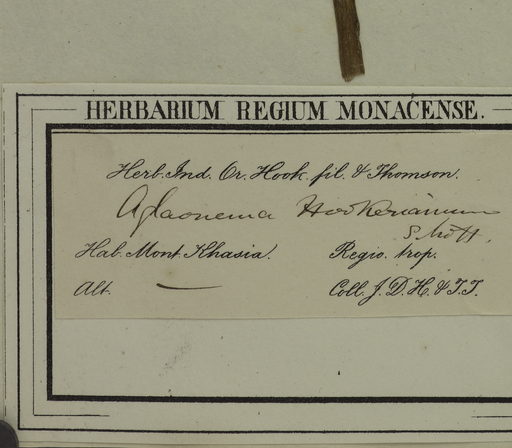 HERBARIUM REGIUM MONACENSE.
Herb. Ind. Or. Hook. fil. & Thomson.
Aglaonema Hookerianum
Schott.
Hab. Mont. Khasia. Regio. trop.
Alt. — Coll. J. D. H. & T. T.